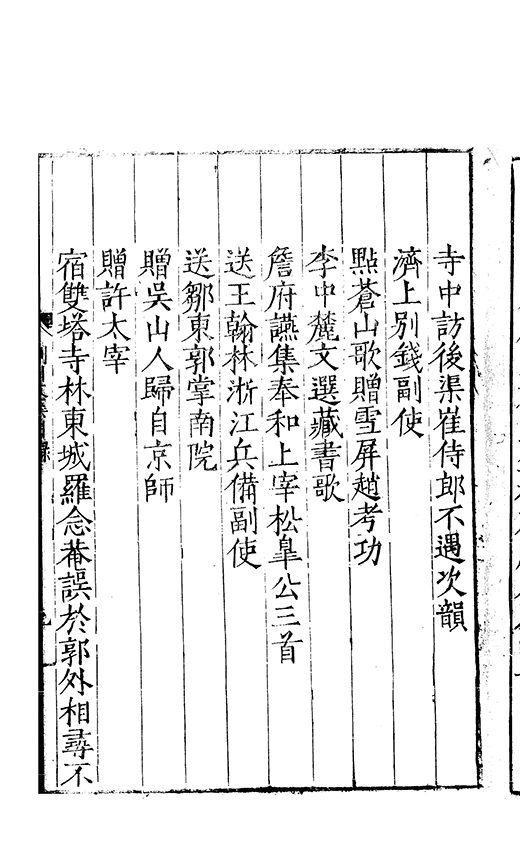 寺中訪後渠崔侍郎不遇次韻
濟上別錢副使
點蒼山歌贈雪屏趙考功
李中麓文選藏書歌
詹府讌集奉和上宰松臯公三首
送王翰林浙江兵備副使
送鄒東郭掌南院
贈吳山人歸自京師
贈許太宰
宿雙塔寺林東城羅念菴誤於郭外相尋不